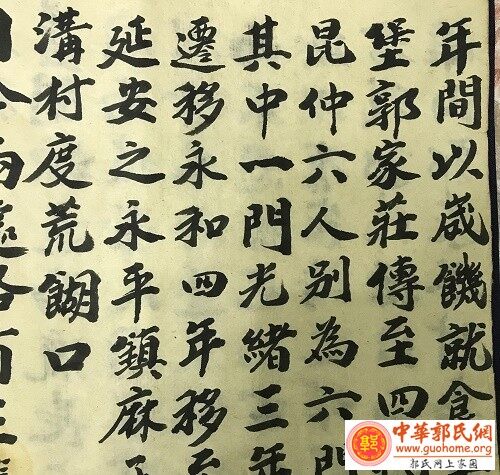 年間以歲饑就食
堡郭家莊傳至四
昆仲六人別為六門
其中一門光緒三年
遷移永和四年移
延安之永平鎮麻
溝村度荒餬口
中華郭氏網
www.guohome.org
郭氏网上家園